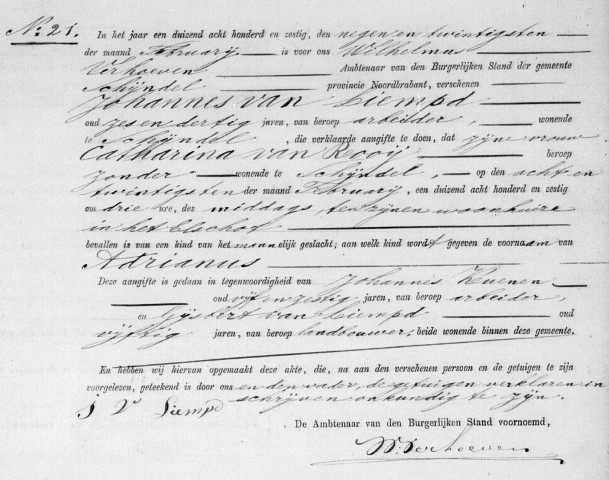 No. 21.
In het jaar een duizend acht honderd en zestig, den negen en twintigsten
der maand Februarij is voor ons Wilhelmus
Verhoeven Ambtenaar van den Burgerlijken Stand der gemeente
Schijndel provincie Noordbrabant, verschenen
Johannes van Liempd
oud zes en dertig jaren, van beroep arbeider, wonende
te Schijndel, die verklaarde aangifte te doen, dat zijne vrouw
Catharina van Rooij beroep
zonder wonende te Schijndel, op den acht en
twintigsten der maand Februarij, een duizend acht honderd en zestig
om drie ure, des middags, ten zijnen woonhuize
in het Elschot
bevallen is van een kind van het mannelijk geslacht; aan welk kind wordt gegeven de voornaam van
Adrianus
Deze aangifte is gedaan in tegenwoordigheid van Johannis Kuenen
oud vijf en zestig jaren, van beroep arbeider,
en Gijsbert van Liempd oud
vijftig jaren, van beroep landbouwer; beide wonende binnen deze gemeente.
En hebben wij hiervan opgemaakt deze akte, die, na aan den verschenen persoon en de getuigen te zijn
voorgelezen, geteekend is door ons en den vader, de getuigen verklaren in
schrijven onkundig te zijn.
J Vn Liempd
De Ambtenaar van den Burgerlijken Stand voornoemd,
W. Verhoeven